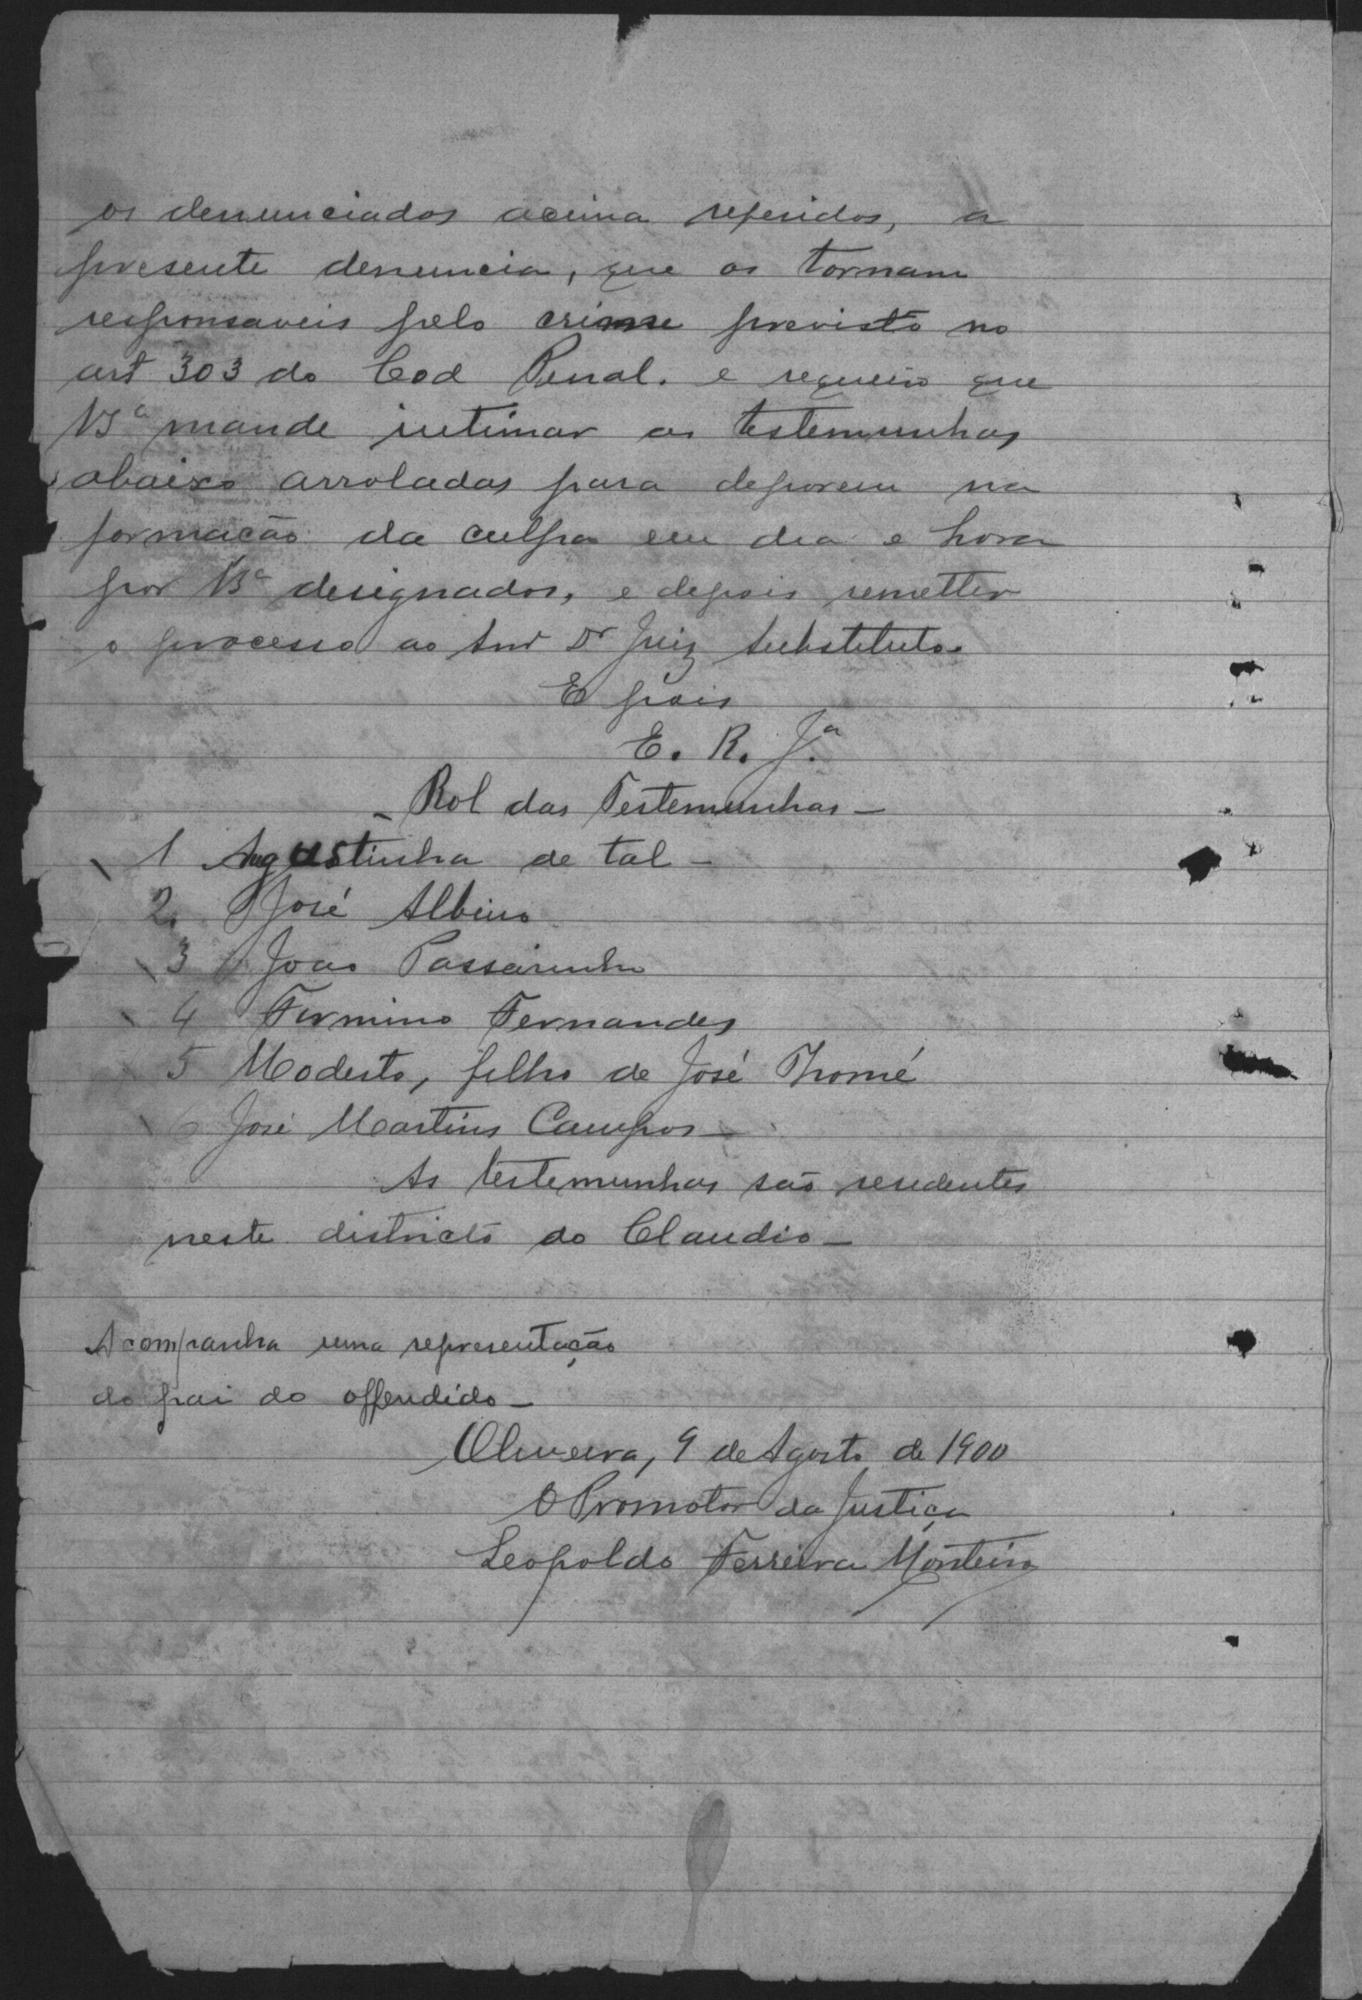 os denunciados acima referidos, a
presente denuncia, que os tornam
responsaveis pelo crime previsto no
art 303 do Cod Penal. e requeiro que
VSª mande intimar as testemunhas
abaixo arroladas para deporem na
formação da culpa em dia e hora
por VSª designados, e depois remetter
o processo ao Snr Dr Juiz Substituto.
E pois
E. R. Jª.
- Rol das Testemunhas -
1 Agustinha de tal -
2. José Albino
3 João Passarinho
4 Firmino Fernandes
5 Modesto, filho de José Thomé
6 José Martins Campos -
As testemunhas são residentes
neste districto do Claudio -
Acompanha uma representação
do pai do offendido -
Oliveira, 9 de Agosto de 1900
O Promotor da Justiça
Leopoldo Ferreira Monteiro